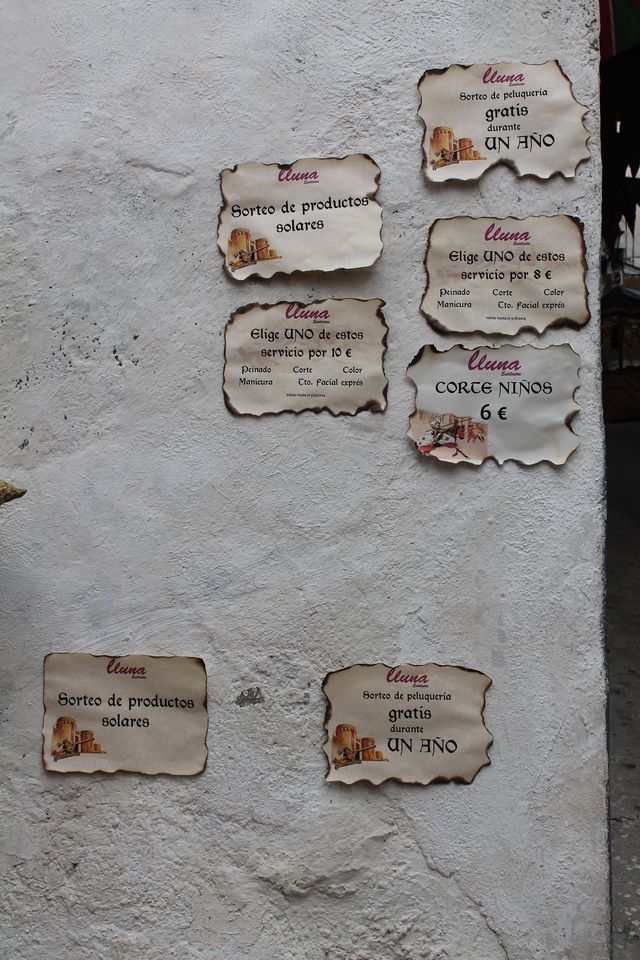 lluna
Estilistes
Sorteo de peluquería
gratis
durante
UN AÑO
lluna
Sorteo de productos
solares
lluna
Estilistes
Elige UNO de estos
servicio por 8 €
Peinado Corte Color
Manicura Tto. Facial exprés
lluna
Estilistes
Elige UNO de estos
servicio por 10 €
Peinado Corte Color
Manicura Tto. Facial exprés
lluna
Estilistes
CORTE NIÑOS
6 €
lluna
Sorteo de productos
solares
lluna
Estilistes
Sorteo de peluquería
gratis
durante
UN AÑO